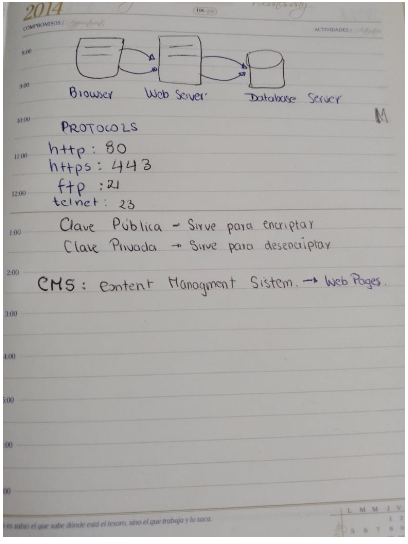 2014
COMPROMISOS:
ACTIVIDADES:
8:00
9:00
Browser Web Server Database Server
10:00
M
PROTOCOLS
http : 80
11:00
https : 443
ftp : 21
12:00
telnet : 23
Clave Pública - Sirve para encriptar
1:00
Clave Privada → Sirve para desencriptar
2:00
CMS : Content Managment Sistem. → Web Pages.
3:00
4:00
5:00
:00
00
es sabio el que sabe dónde está el tesoro, sino el que trabaja y lo saca.
L M M J V
1 2
5 6 7 8 9